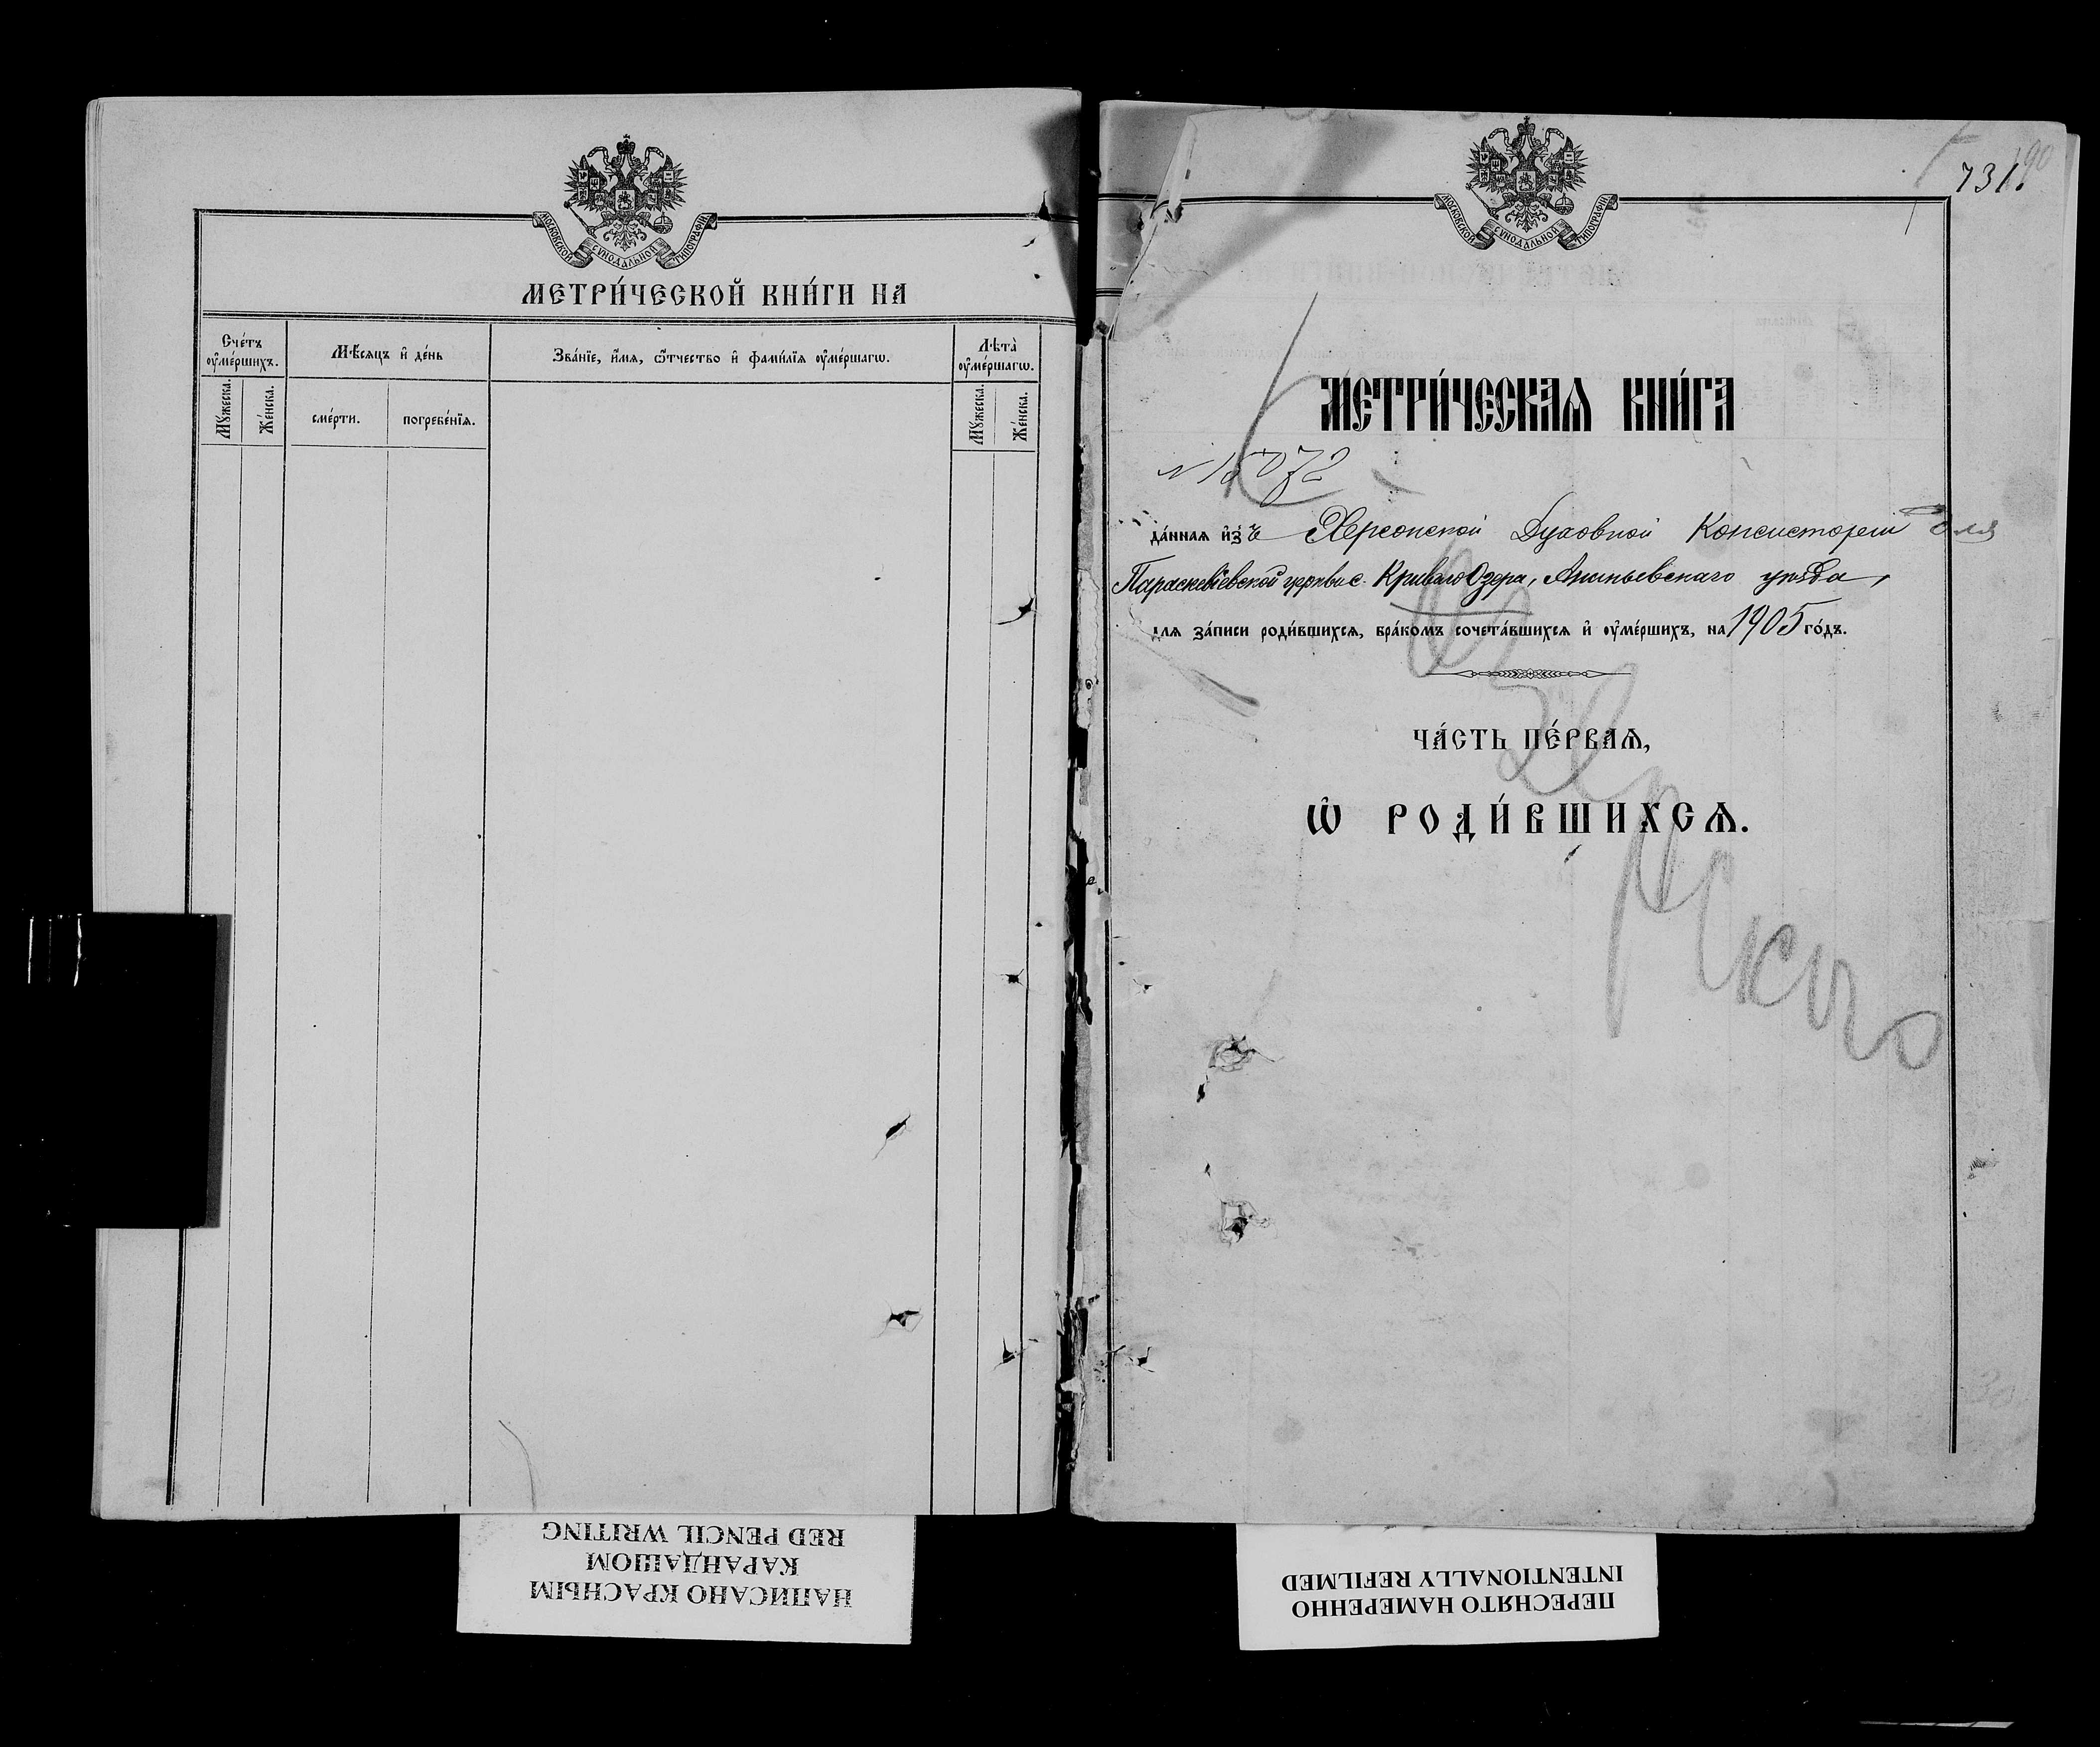 МОСКОВСКОЙ СѴНОДАЛЬНОЙ ТИПОГРАФІИ
МЕТРИ́ЧЕСКОЙ КНИ́ГИ НА
Сче́тъ оу҆ме́ршихъ.
Мѣ́сяцъ и҆ де́нь
Зва́нїе, и҆́мя, ѻ҆́тчество и҆ фами́лїя оу҆ме́ршагѡ.
Лѣта̀ оу҆ме́ршагѡ.
Мꙋ́жеска.
Же́нска.
сме́рти.
погребе́нїя.
Мꙋ́жеска.
Же́нска.
731.
МОСКОВСКОЙ СѴНОДАЛЬНОЙ ТИПОГРАФІИ
МЕТРИ́ЧЕСКАѦ КНИ́ГА
N 15072
да́нная и҆з̾ Херсонской Духовной Консисторіи для
Параскевіевской церкви с. Криваго Озера, Ананьевскаго уѣзда,
для за́писи роди́вшихся, бра́комъ сочета́вшихся и҆ оу҆ме́ршихъ, на 1905 го́дъ.
ЧА́СТЬ ПЕ́РВАѦ,
Ѽ РОДИ́ВШИХСѦ.
НАПИСАНО КРАСНЫМ
КАРАНДАШОМ
RED PENCIL WRITING
ПЕРЕСНЯТО НАМЕРЕННО
INTENTIONALLY REFILMED